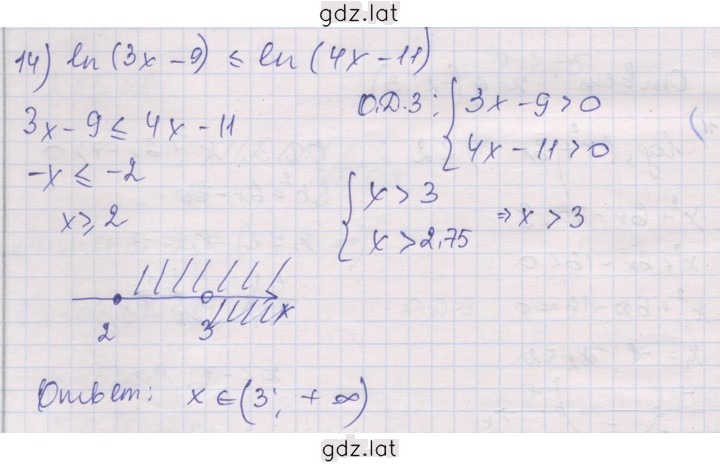 gdz.lat
14) ln(3x-9) ≤ ln(4x-11)
3x-9 ≤ 4x-11
-x ≤ -2
x ≥ 2
О.Д.З: { 3x-9>0
4x-11>0
{ x>3
x>2,75 ⇒ x>3
2 3 x
Ответ: x∈(3; +∞)
gdz.lat